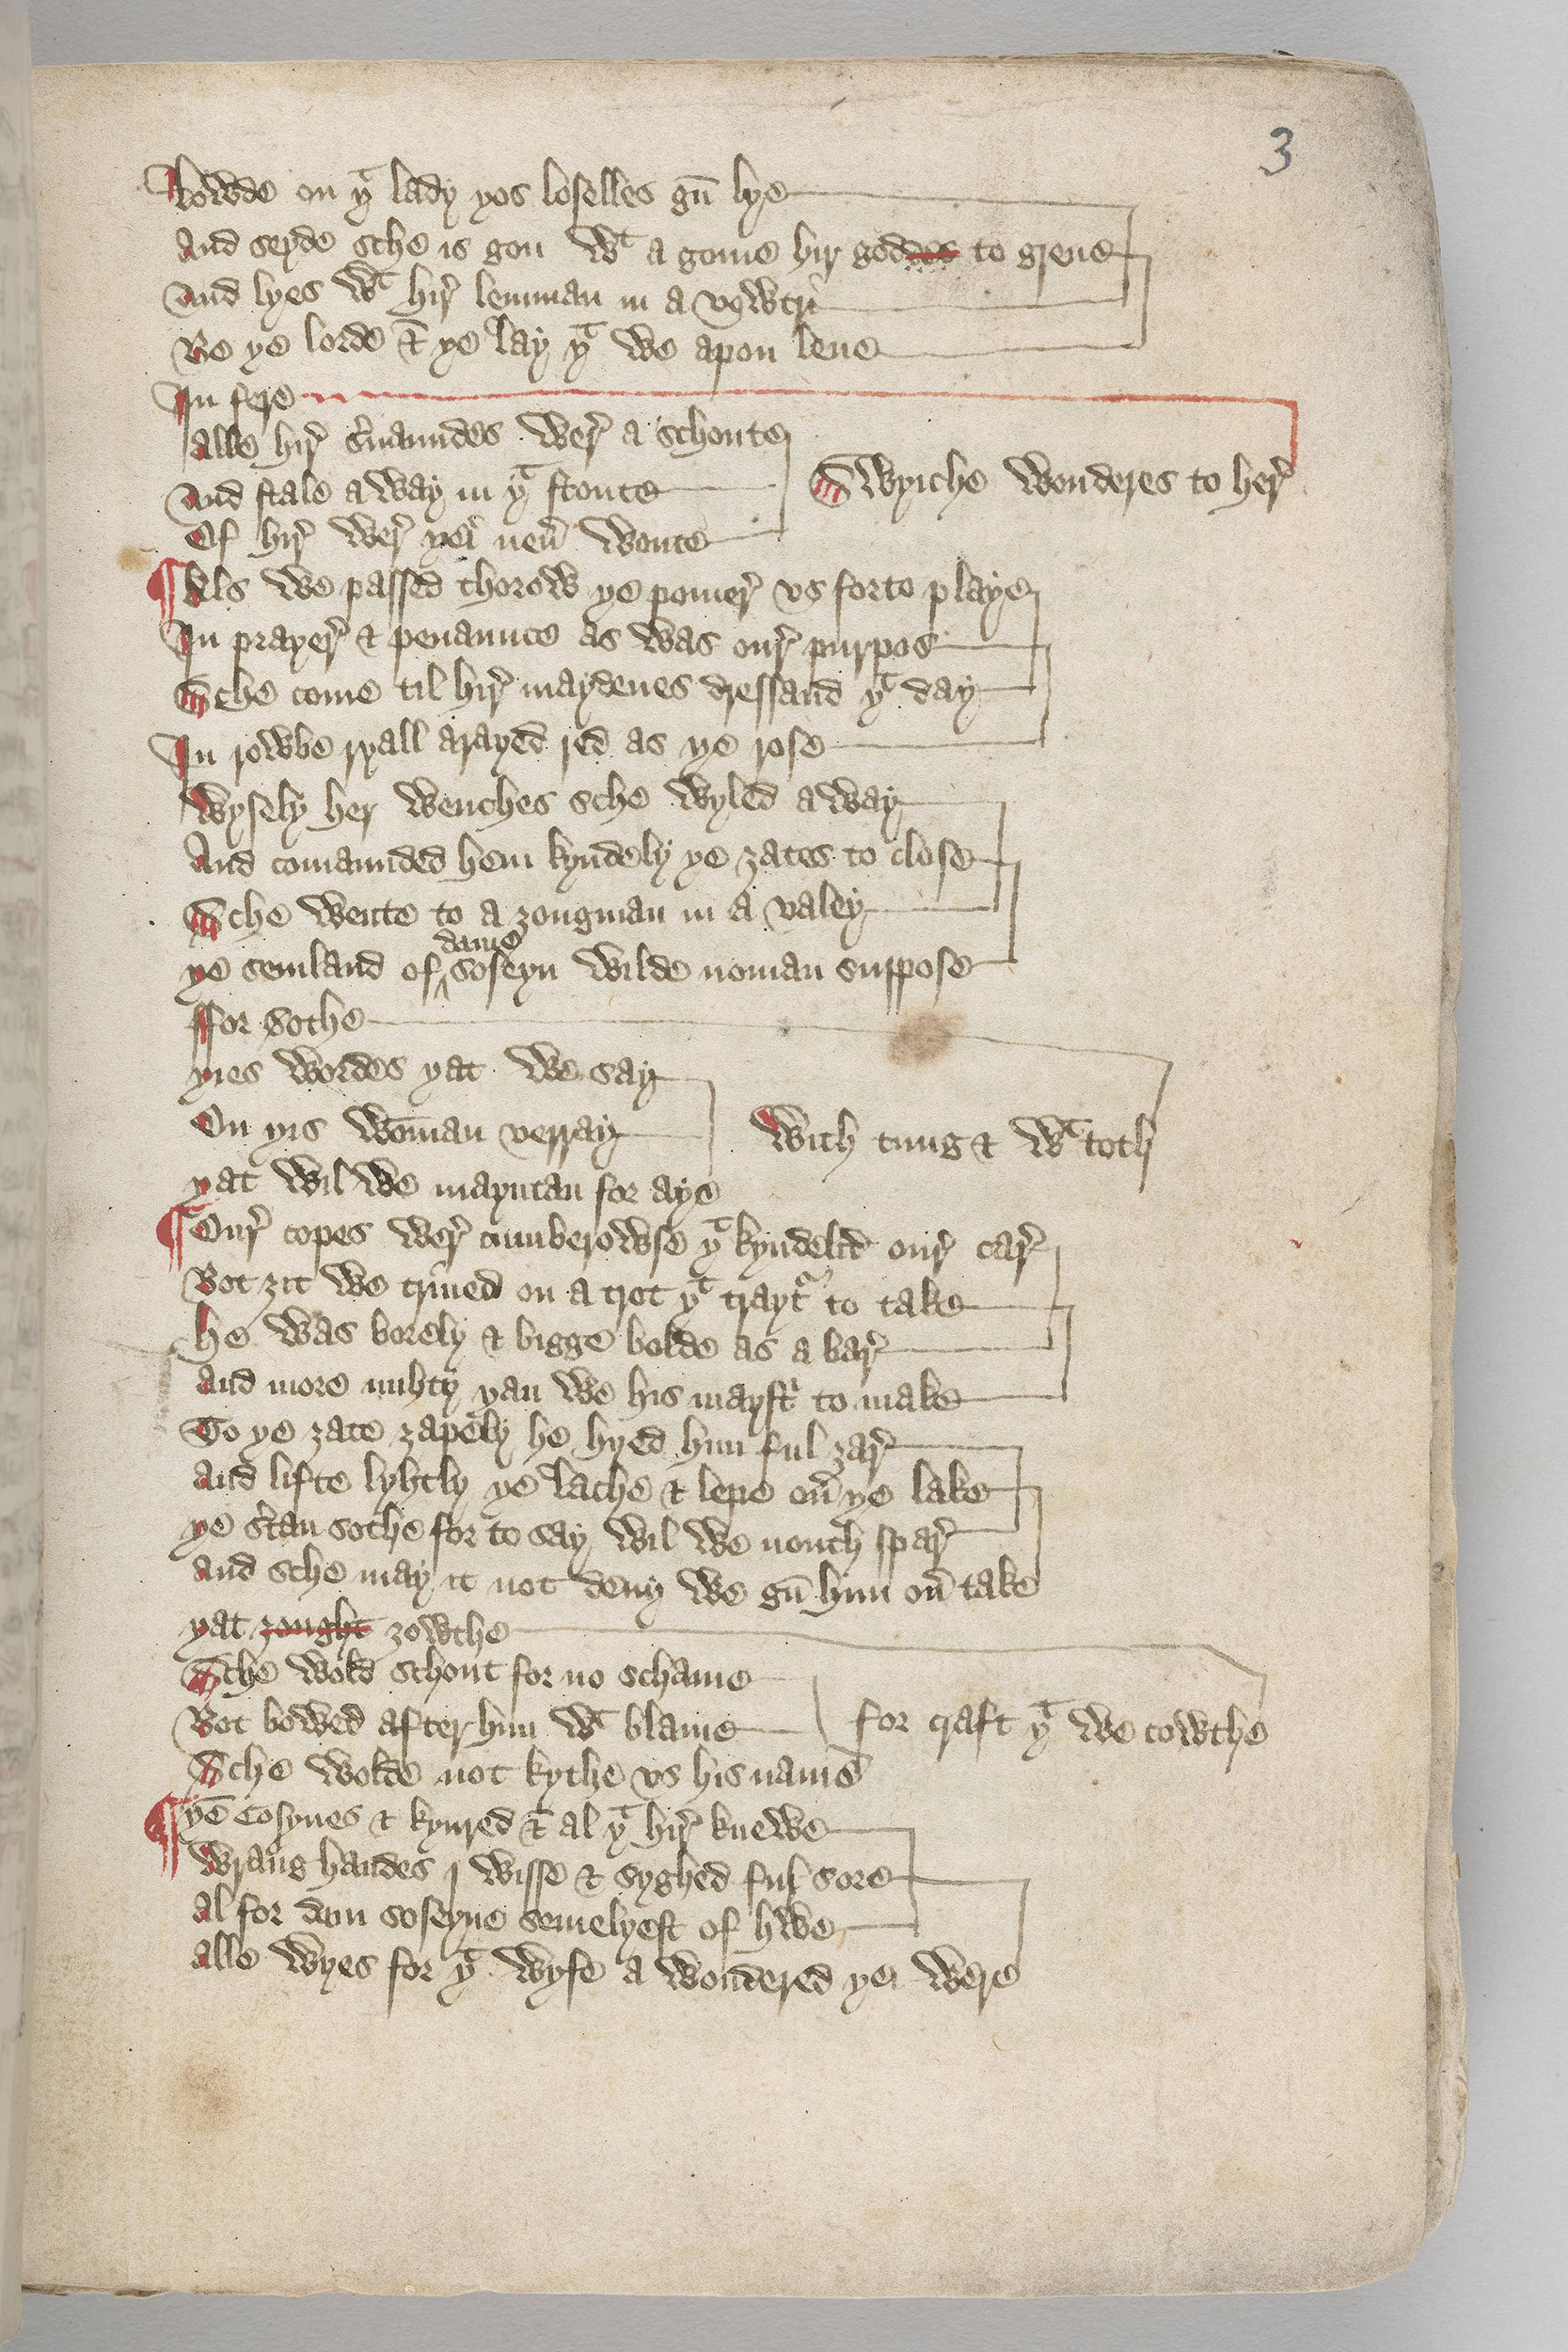 3
lowde on yͭ lady yos loselles gūn lye
And seyde sche is gon wͭ a gome hir goddes to greue
And lyes wͭ hir lemman in a
Be ye lorde & ye lay yͭ we apon leue
In fere
Alle hir s'uaundes wer a schonte
And stale a way in yͭ stonte
Swyiche wonderes to her
Of hir wer yei neu' wonte
¶ Als we passed thorow ye pomer vs forto playe
In prayer & penaunce as was our purpos
Sche come til hir maydenes dressand yͭ day
In rowbe ryall arayed red as ye rose
Wysely her wenches sche wyled away
And comaunded hem kyndely ye zates to close
Sche wente to a zongman in a valey
ye semland of ^dame soseyn wilde noman suppose
ffor sothe
yies wordes yat we say
On yis woman verray
With tung & wͭ toth
yat wil we mayntan for aye
¶ Our copes wer cumberowse yͭ kyndeled our car
Bot zit we trined on a trot yͭ trayt' to take
he was borely & bigge bolde as a bar
And more mihty yan we his mayst' to make
To ye zate zapely he hyed him ful zar
And lifte lyhtly ye lache & lepe ou' ye lake
ye s'tan sothe for to say wil we nouth spar
And sche may it not deny we gūn him ou' take
yat zought zowthe
Sche wold schont for no schame
Bot bowed after him wͭ blame
for craft yͭ we cowthe
Sche wolde not kythe vs his name
¶ yē Cosynes & kynred & al yͭ hir knewe
Wrang handes i wisse & syghed ful sore
Al for dam soseyne semelyest of hwe
Alle wyes for yͭ wyfe a wondered yei were